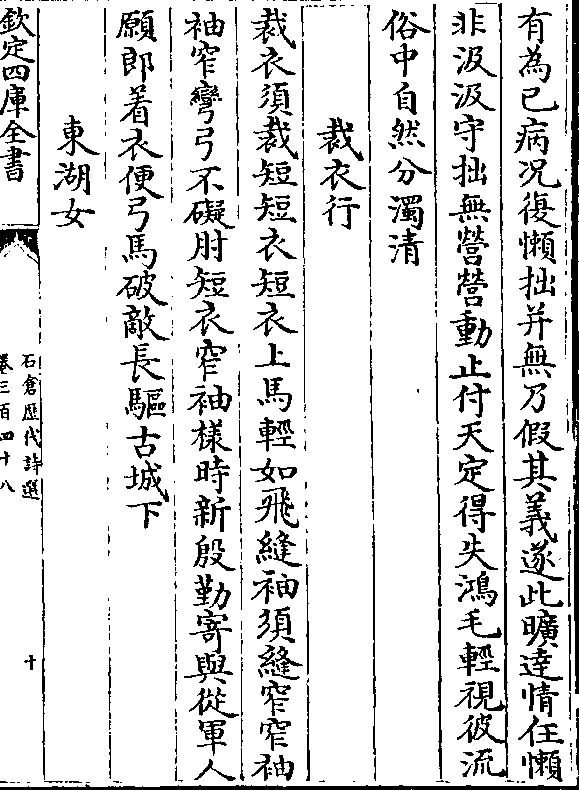 有為已病况復懶拙并無乃假其義遂此曠逹情任懶
非汲汲守拙無營營動止付天定得失鴻毛輕視彼流
俗中自然分濁清
裁衣行
裁衣須裁短短衣短衣上馬輕如飛縫袖須縫窄窄袖
袖窄彎弓不礙肘短衣窄袖樣時新殷勤寄與從軍人
願郎着衣便弓馬破敵長驅古城下
東湖女
欽定四庫全書
石倉歴代詩選
卷三百四十八
十